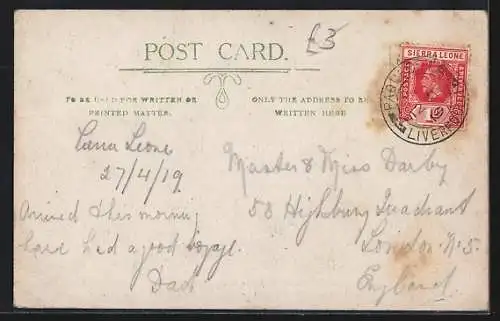 £3
POST CARD.
SIERRA LEONE
POSTAGE
LIVERPOOL
TO BE USED FOR WRITTEN OR
PRINTED MATTER.
ONLY THE ADDRESS TO BE
WRITTEN HERE
Leone
27/4/19
Arrived this morning
have had a good voyage.
Dad
Master & Miss Darby
58 Highbury Quadrant
London. N.5.
England.